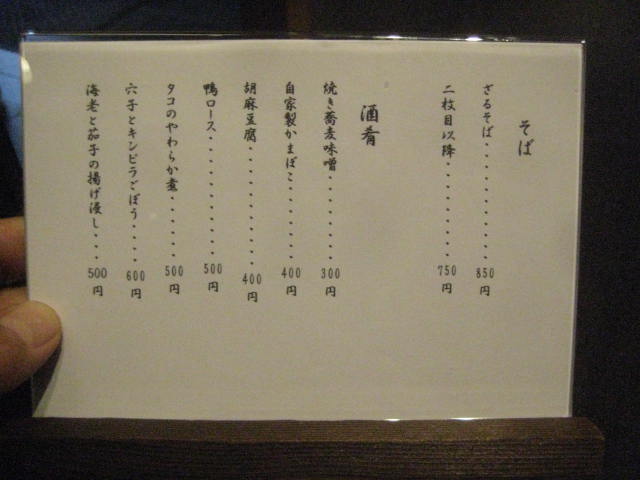 そば
ざるそば・・・・・・・・・・・850円
二枚目以降・・・・・・・・・750円
酒肴
焼き蕎麦味噌・・・・・・・・300円
自家製かまぼこ・・・・・・・400円
胡麻豆腐・・・・・・・・・・・400円
鴨ロース・・・・・・・・・・・500円
タコのやわらか煮・・・・・・500円
穴子とキンピラごぼう・・・・600円
海老と茄子の揚げ浸し・・・・500円